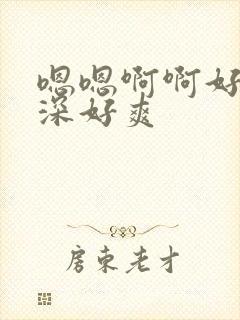 嗯嗯啊啊好
深好爽
房东老才